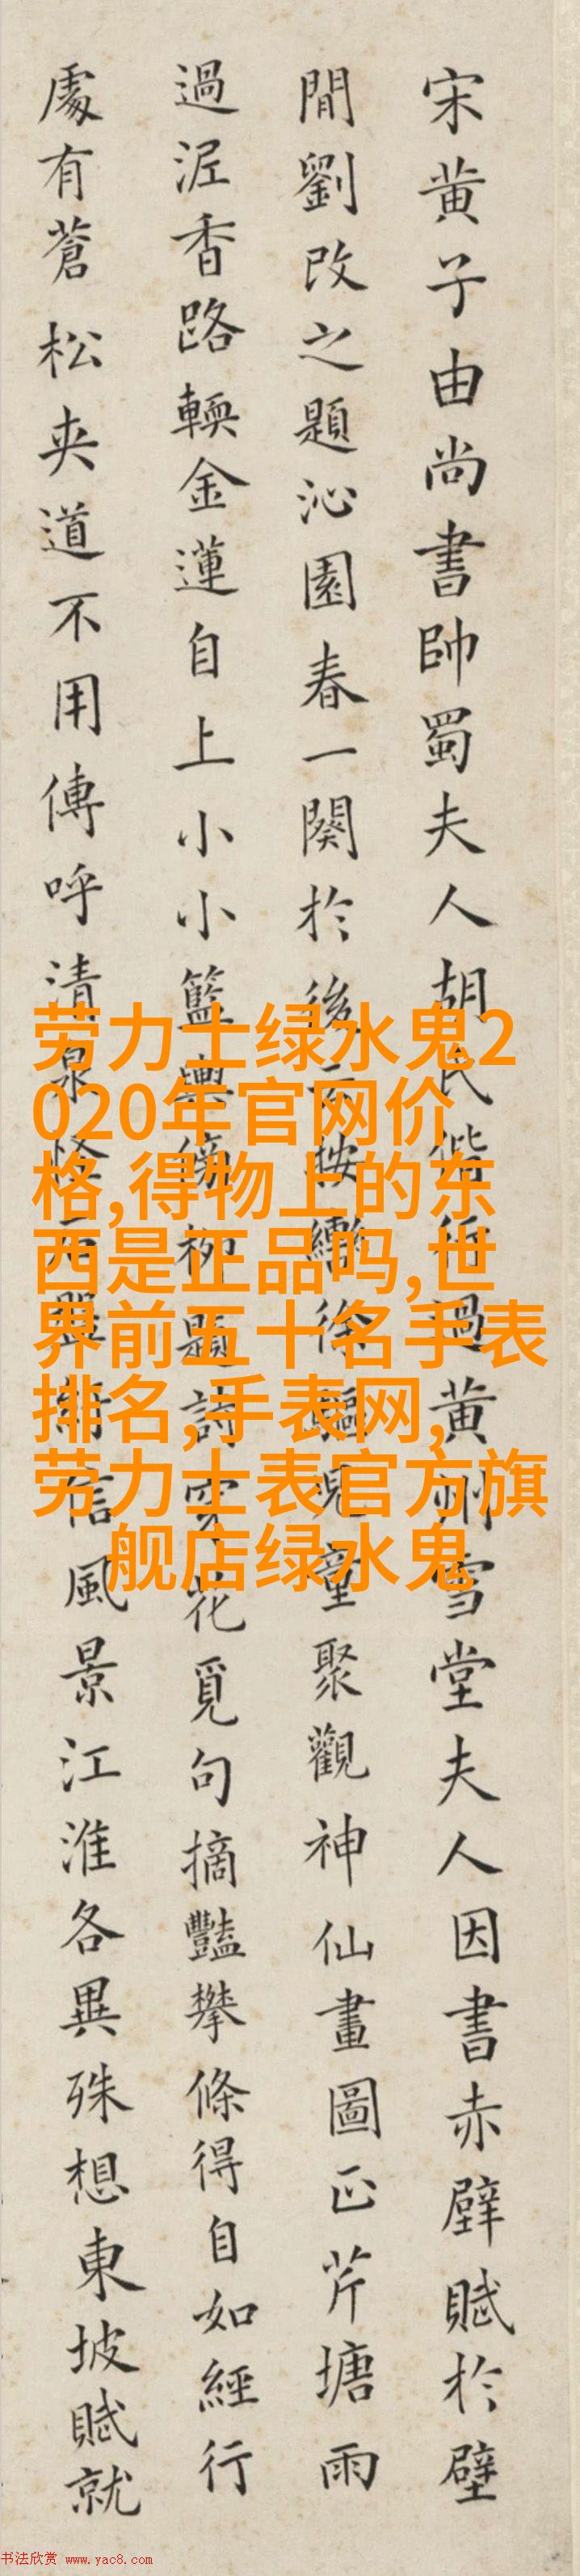 宋黄子由尚書帥蜀夫人胡氏偕行過黄州雪堂夫人因書赤壁賦於壁
間劉改之題沁園春一闋於後云按轡徐驅兒童聚觀神仙畫圖正芹塘雨
過泥香路輭金蓮自上小小籃輿傍柳題詩穿花覓句摘豔攀條得自如經行
處有蒼松夾道不用傳呼清泉怪石盤紆信風景江淮各異殊想東坡賦就
劳力士绿水鬼2
020年官网价
格,得物上的东
西是正品吗,世
界前五十名手表
排名,手表网,
劳力士表官方旗
舰店绿水鬼
书法欣赏 www.yac8.com